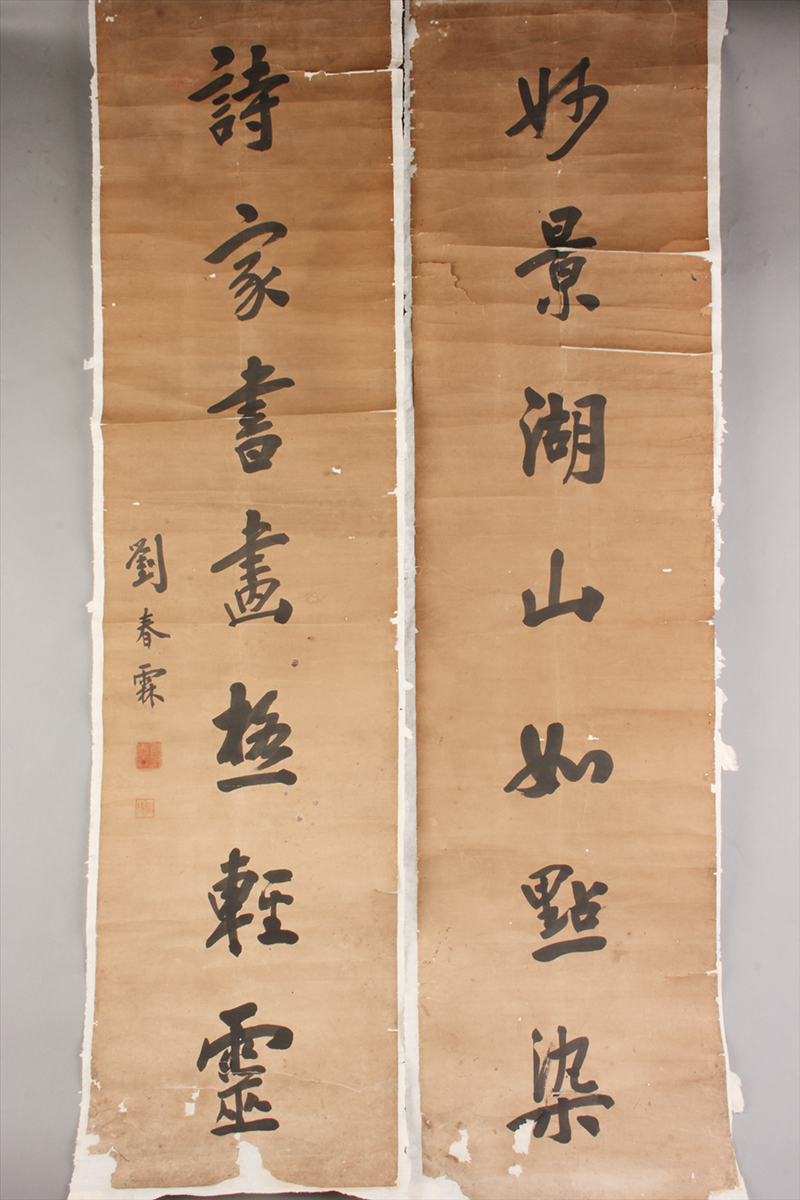 妙景湖山如點染
詩家書畫極輕靈
劉春霖